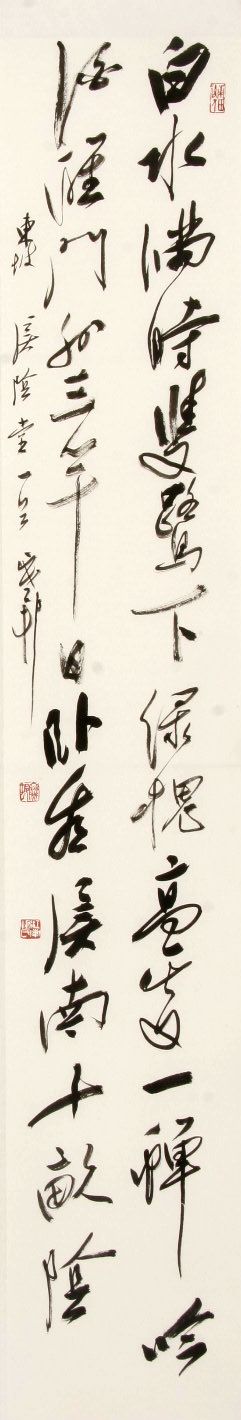 白水滿時雙鷺下綠槐高處一蟬吟
酒醒門外三竿日卧看溪南十畝陰
東坡溪陰堂一首